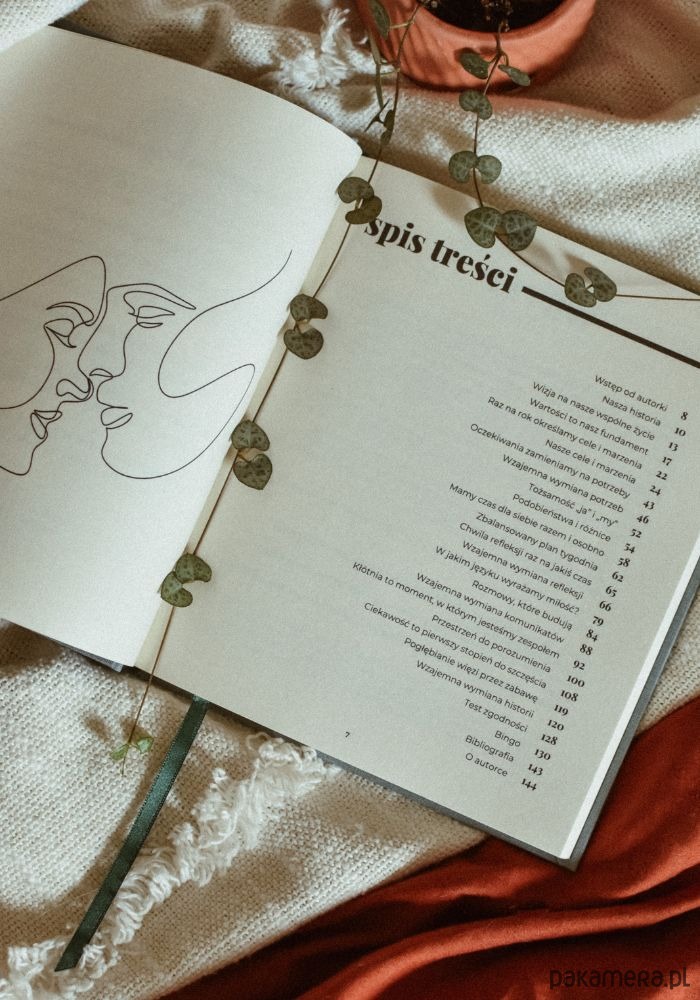 spis treści
Wstęp od autorki 8
Nasza historia 10
Wizja na nasze wspólne życie 13
Wartości to nasz fundament 17
Raz na rok określamy cele i marzenia 22
Nasze cele i marzenia 24
Oczekiwania zamieniamy na potrzeby 43
Wzajemna wymiana potrzeb 46
Tożsamość „ja” i „my” 52
Podobieństwa i różnice 54
Mamy czas dla siebie razem i osobno 58
Zbalansowany plan tygodnia 62
Chwila refleksji raz na jakiś czas 65
Wzajemna wymiana refleksji 66
W jakim języku wyrażamy miłość? 79
Rozmowy, które budują 84
Wzajemna wymiana komunikatów 88
Kłótnia to moment, w którym jesteśmy zespołem 92
Przestrzeń do porozumienia 100
Ciekawość to pierwszy stopień do szczęścia 108
Pogłębianie więzi przez zabawę 119
Wzajemna wymiana historii 120
Test zgodności 128
Bingo 130
Bibliografia 143
O autorce 144
7
pakamera.pl